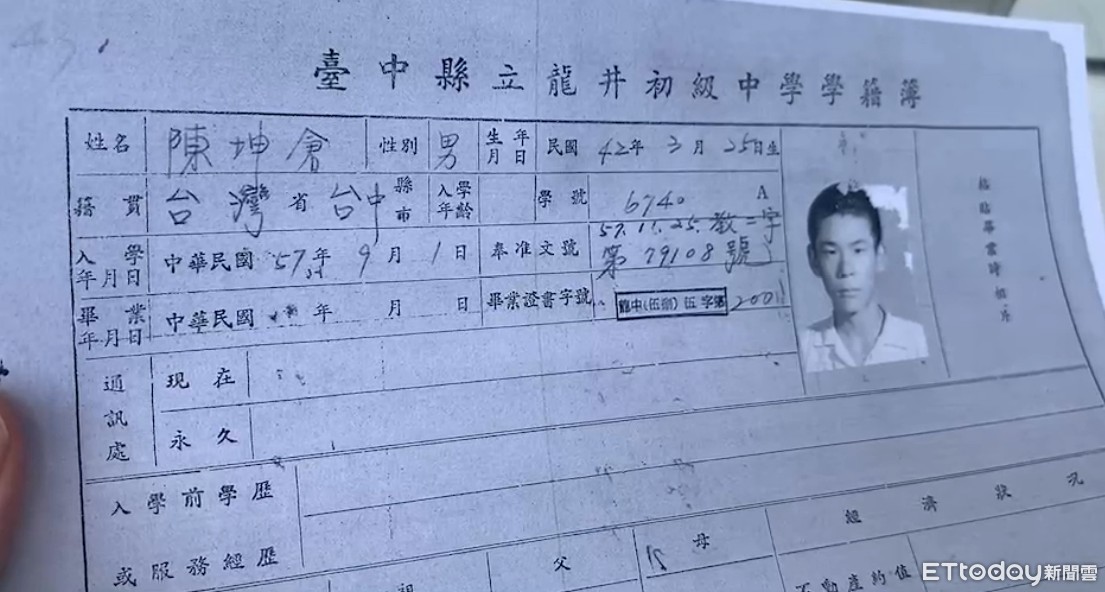 臺中縣立龍井初級中學學籍簿
姓名 陳坤倉 性別 男 生年月日 民國 42年 3月 25日生
籍貫 台灣省台中縣市 入學年齡 學號 6740 A
入學年月日 中華民國 57年 9月 1日 奉准文號 57.11.25.教二字第79108號
畢業年月日 中華民國 年 月 日 畢業證書字號 龍中(伍捌)伍字第 2001
通訊處 現在
永久
入學前學歷
或服務經歷
父 母 經濟狀況
祖 不動產約值
粘貼畢業時相片
ETtoday新聞雲